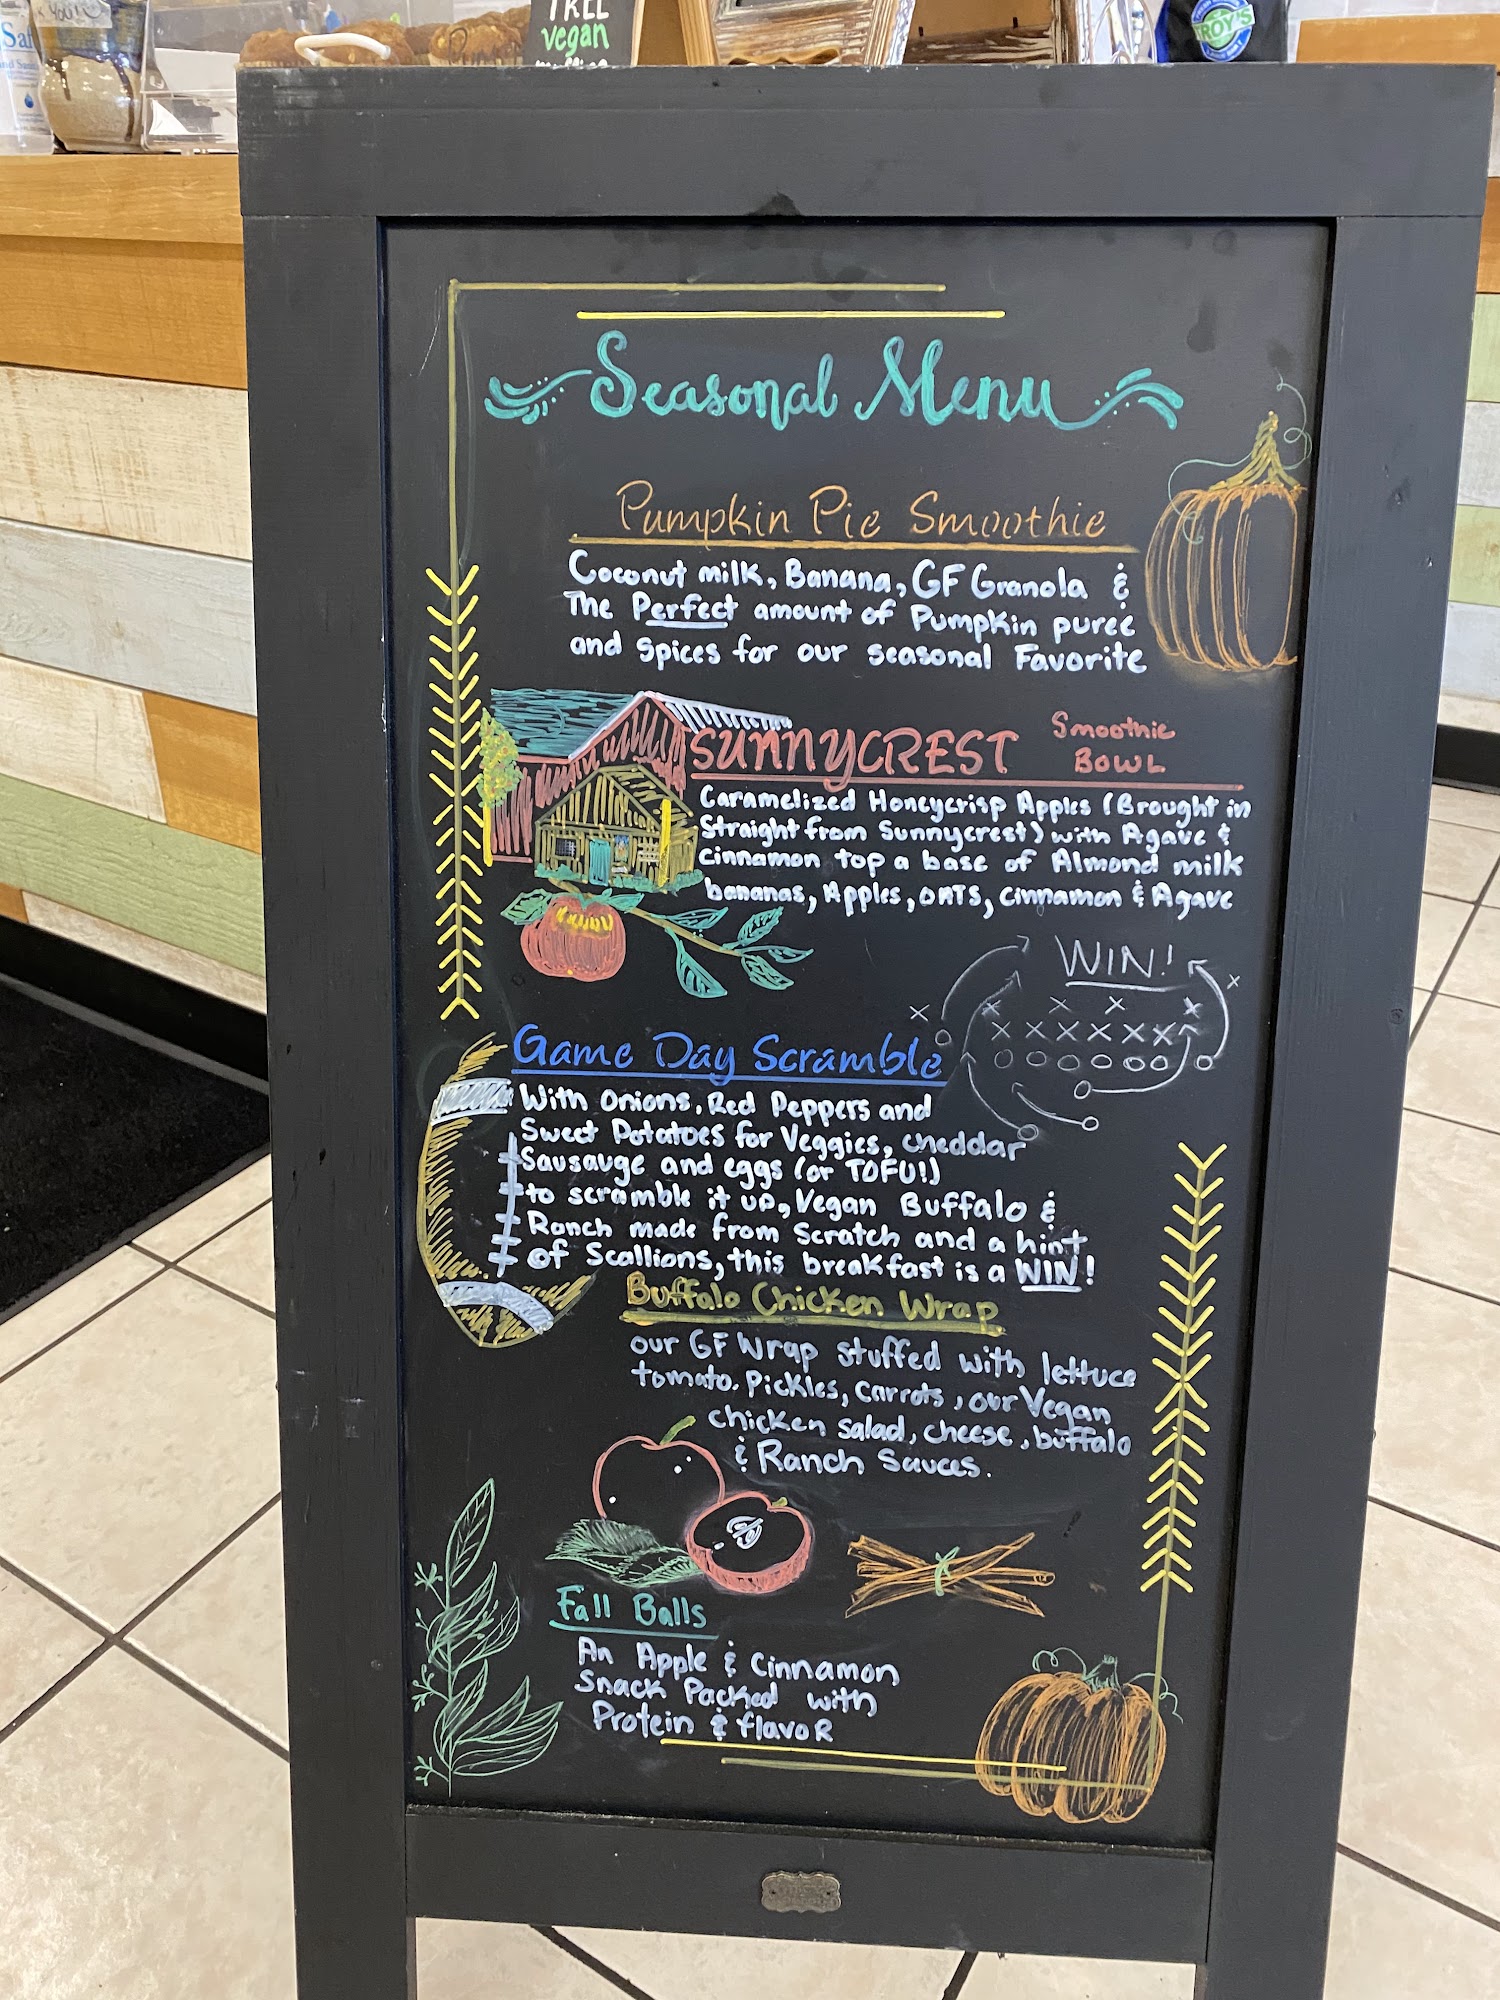 YOU!
Saf
FREE
vegan
TROY'S
Seasonal Menu
Pumpkin Pie Smoothie
Coconut milk, Banana, GF Granola &
The Perfect amount of Pumpkin puree
and spices for our seasonal Favorite
SUNNYCREST Smoothie
BOWL
Caramelized Honeycrisp Apples (Brought in
Straight from Sunnycrest) with Agave &
cinnamon top a base of Almond milk
bananas, Apples, OATS, cinnamon & Agave
WIN!
Game Day Scramble
With Onions, Red Peppers and
Sweet Potatoes for Veggies, cheddar
Sausauge and eggs (or TOFU!)
to scramble it up, Vegan Buffalo &
Ranch made from Scratch and a hint
of Scallions, this breakfast is a WIN!
Buffalo Chicken Wrap
our GF Wrap stuffed with lettuce
tomato. Pickles, carrots, our Vegan
chicken salad, cheese, buffalo
& Ranch Sauces.
Fall Balls
An Apple & Cinnamon
Snack Packed with
Protein & flavoR